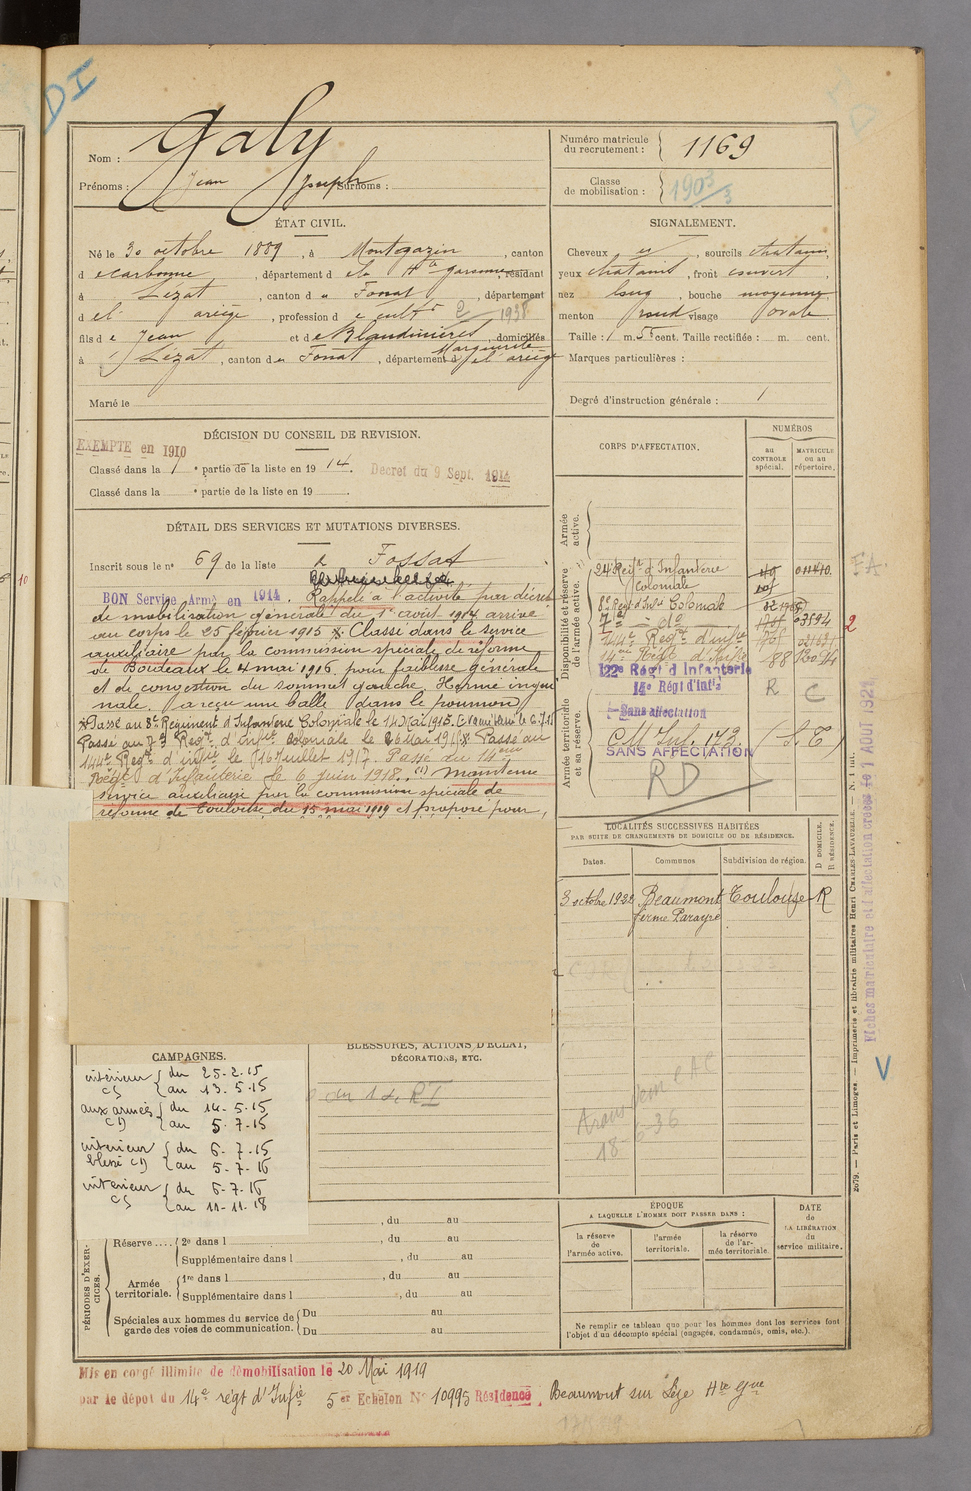 DI
Galy
Nom :
Prénoms : Jean Joseph Surnoms :
Numéro matricule du recrutement : 1169
Classe de mobilisation : 1903
ÉTAT CIVIL.
Né le 30 octobre 1889, à Montgazin, canton
d e Carbonne, département d e la Hte garonne, résidant
à Lézat, canton d u Fossat, département
d e l' ariège, profession d e cultr 2 1938
fils d e Jean et d e Blandinières Marguerite, domiciliés
à Lézat, canton du Fossat, département d e l'ariège
Marié le
SIGNALEMENT.
Cheveux et, sourcils chatains
yeux chatains, front couvert,
nez long, bouche moyenne,
menton rond visage ovale.
Taille : 1 m. 55 cent. Taille rectifiée : m. cent.
Marques particulières :
Degré d'instruction générale : 1
DÉCISION DU CONSEIL DE REVISION.
EXEMPTE en 1910
Classé dans la 1e partie de la liste en 19 14. Decret du 9 Sept. 1914
Classé dans la e partie de la liste en 19
DÉTAIL DES SERVICES ET MUTATIONS DIVERSES.
Inscrit sous le no 69 de la liste d Fossat
BON Service Armé en 1914. Rappelé à l'activité par décret
de mobilisation générale du 1er août 1914 arrivé
au corps le 25 février 1915 X. Classé dans le service
auxiliaire par la commission spéciale de réforme
de Bordeaux le 4 mai 1916 pour faiblesse générale
et de convestion du sommet gauche. Hernie ingui
nale. (a reçu une balle dans le poumon)
X Passé au 8e Régiment d'Infanterie Coloniale le 14 Mai 1915.
Passé au 7e Regt d'infie coloniale le 26 Mai X Passé au
144e Regt d'infie le 16 Juillet 1917. Passé au 14eme
Regt d'Infanterie le 6 juin 1918. (1) Maintenu
service auxiliaire par la commission spéciale de
réforme de Toulouse du 15 mai 1919 et proposé pour,
CORPS D'AFFECTATION.
NUMÉROS
au CONTROLE spécial.
MATRICULE ou au répertoire.
Armée active.
Disponibilité et réserve de l'armée active.
24e Regt d'Infanterie Coloniale
8e Regt d'Infie Coloniale
7e - do
144e Regt d'infie
14eme Regt d'Infie 88
122e Régt d'Infanterie R C
14e Régt d'Infie
Sans affectation
Armée territoriale et sa réserve.
C M Inf. 173 (S. T)
SANS AFFECTATION
RD
FA
2
10
LOCALITÉS SUCCESSIVES HABITÉES
PAR SUITE DE CHANGEMENTS DE DOMICILE OU DE RÉSIDENCE.
Dates. Communes Subdivision de région. D DOMICILE. R RÉSIDENCE.
3 octobre 1932 Beaumont Toulouse R
ferme Parayre
18-6-36
CAMPAGNES.
intérieur CS { du 25-2-15
au 13-5-15
aux armées CD { du 14-5-15
au 5-7-15
intérieur blessé CD { du 6-7-15
au 5-7-16
intérieur CS { du 6-7-16
au 11-11-18
BLESSURES, ACTIONS D'ÉCLAT,
DÉCORATIONS, ETC.
du 14e RI
PÉRIODES D'EXERCICES.
, du au
Réserve .... { 2e dans l , du au
Supplémentaire dans l , du au
Armée territoriale. { 1re dans l , du au
Supplémentaire dans l , du au
Spéciales aux hommes du service de garde des voies de communication. { Du au
Du au
ÉPOQUE
A LAQUELLE L'HOMME DOIT PASSER DANS :
la réserve de l'armée active.
l'armée territoriale.
la réserve de l'armée territoriale
DATE de LA LIBÉRATION du service militaire.
Ne remplir ce tableau que pour les hommes dont les services font
l'objet d'un décompte spécial (engagés, condamnés, omis, etc.).
2079. — Paris et Limoges. — Imprimerie et librairie militaires Henri CHARLES-LAVAUZELLE. — N. 1 int.
Fiches matriculaire et d'affectation créées le 1 AOUT 1921
Mis en congé illimité de démobilisation le 20 Mai 1919
par le dépôt du 14e régt d'Infie 5er Echelon No 10995 Résidence, Beaumont sur Lèze Hte Gne